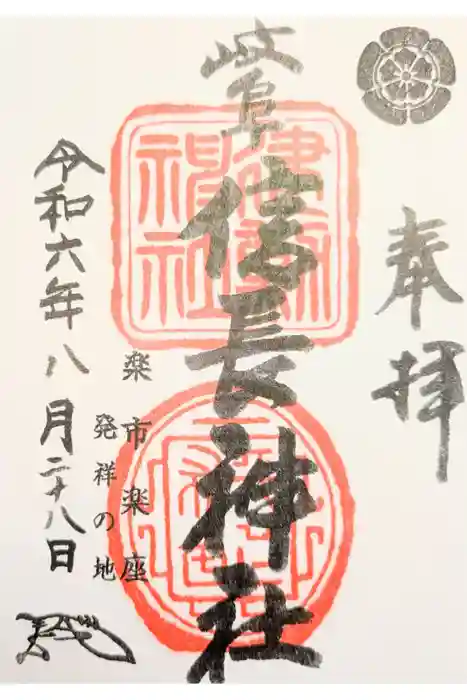 奉拝
岐阜信長神社
建勲神社
楽市楽座
発祥の地
令和六年八月二十八日